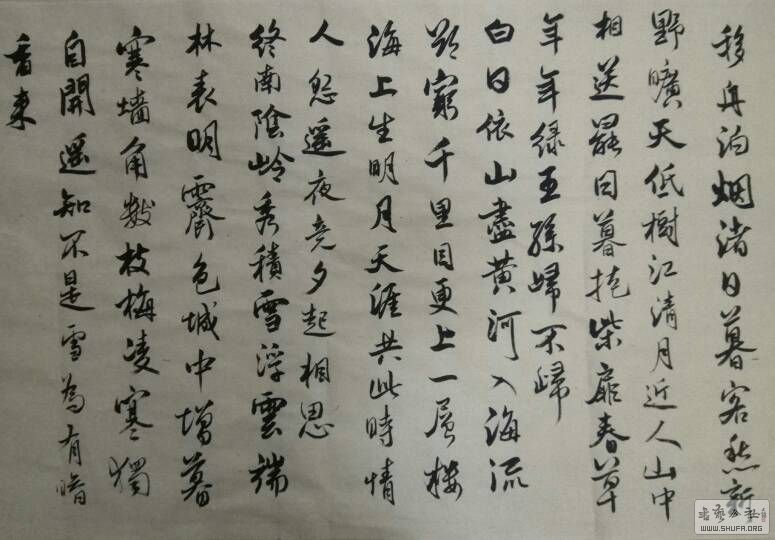 移舟泊烟渚日暮客愁新
野曠天低樹江清月近人山中
相送罷日暮掩柴扉春草
年年绿王孫歸不歸
白日依山盡黄河入海流
欲窮千里目更上一层楼
海上生明月天涯共此時情
人怨遥夜竟夕起相思
终南陰岭秀積雪浮雲端
林表明霽色城中增暮
寒墙角數枝梅凌寒獨
自開遥知不是雪為有暗
香来
WWW.SHUFA.ORG